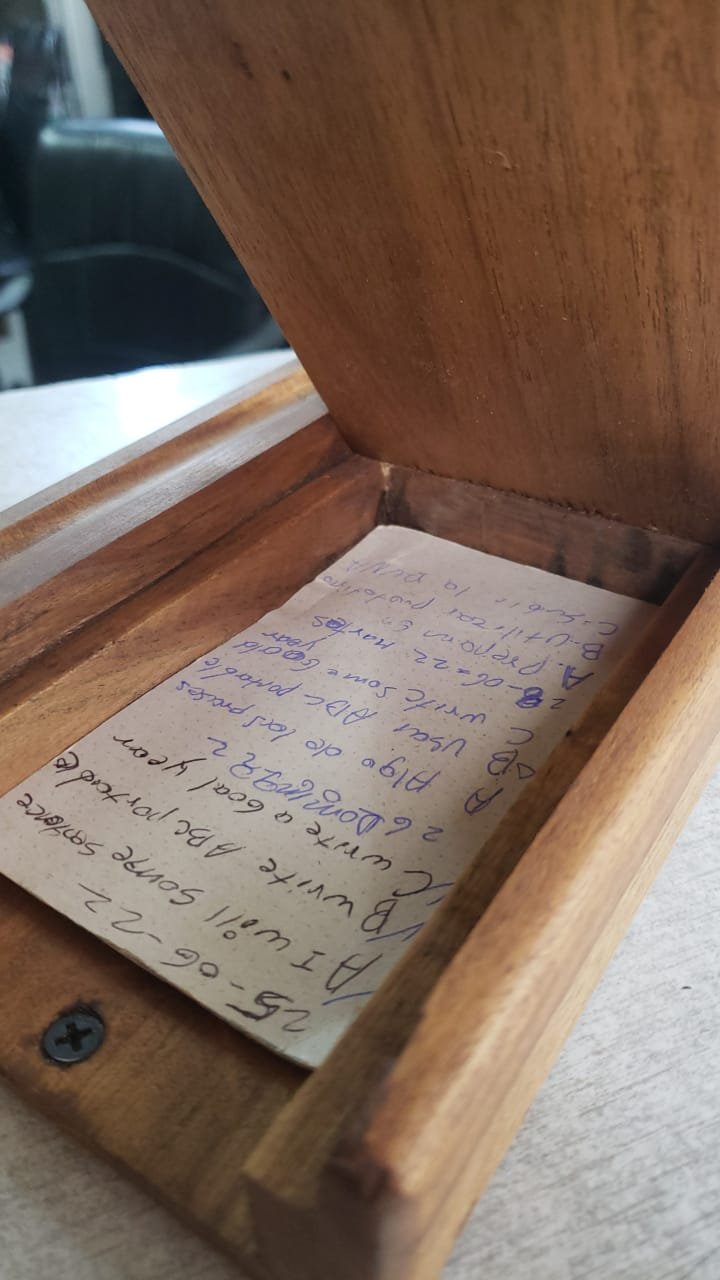 25-06-22
A I will some sentence
B write ABC portable
C write a Goal year
26 Doming 22
A Algo de las
B Usar ABC portable
C write some Goals year
28-06-22 martes
A. Preparar
B-Utilizar
C-Subir la